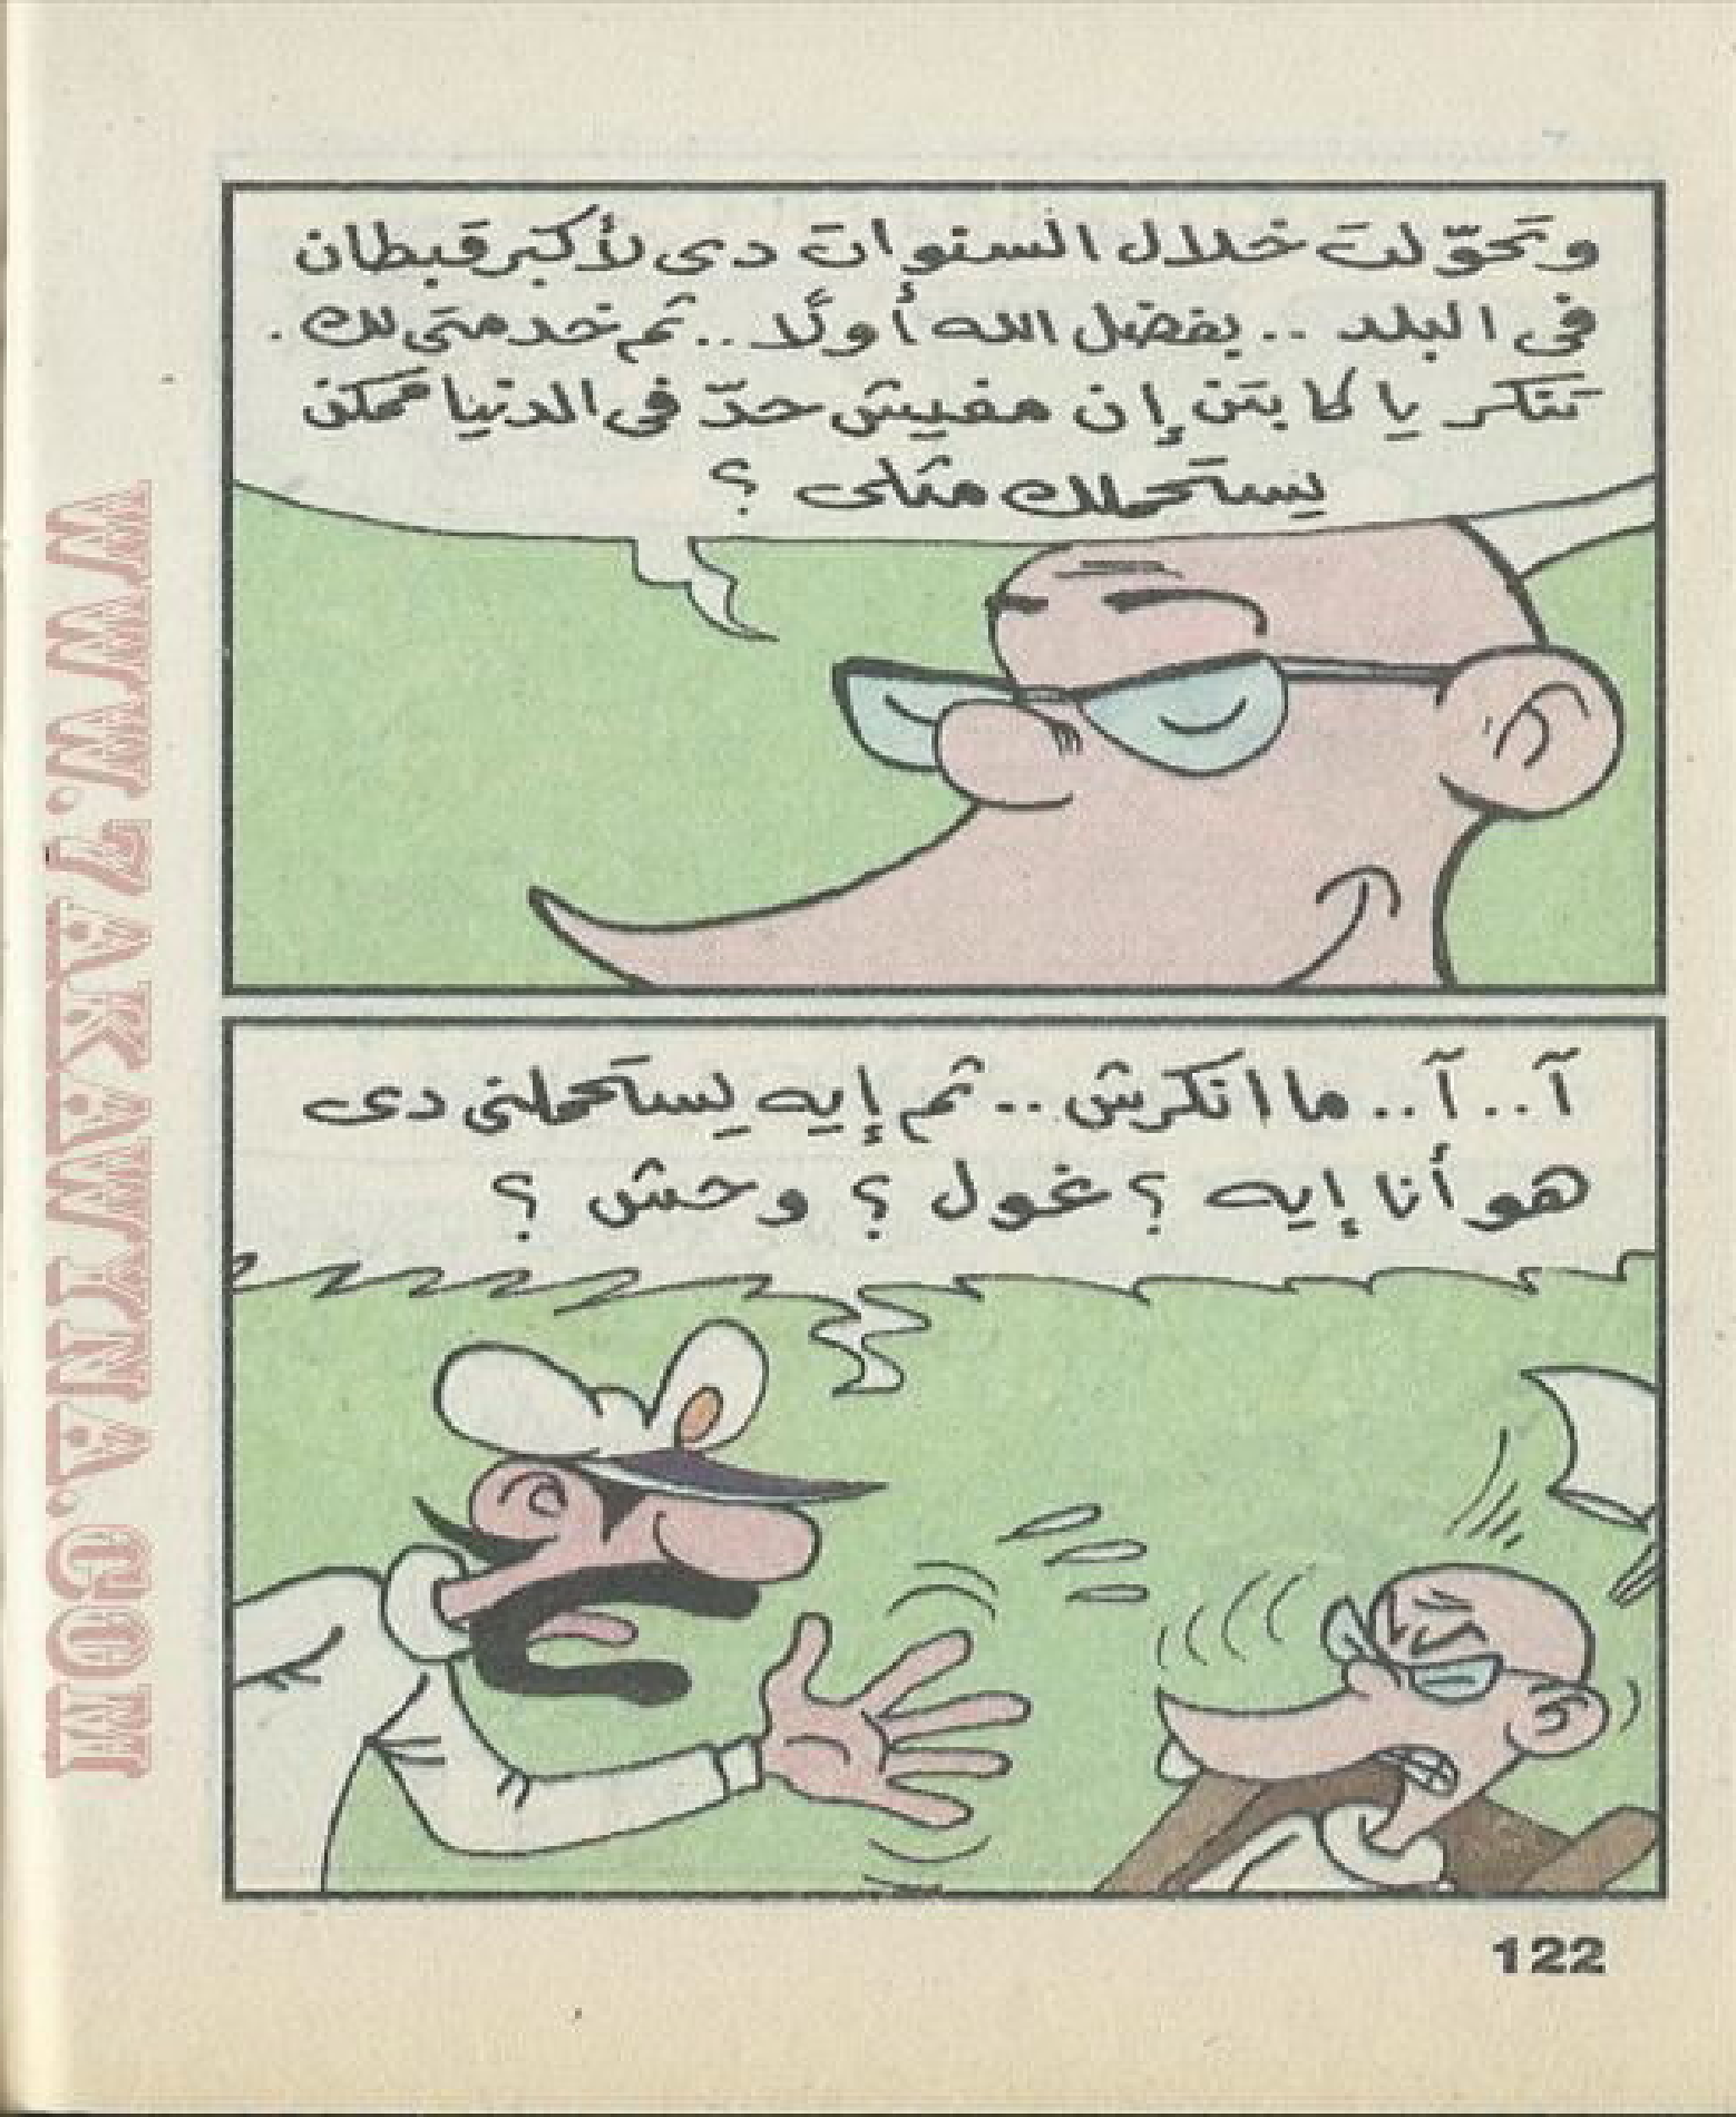 وتحوّلت خلال السنوات دى لأكبر قبطان
فى البلد .. بفضل الله أولًا .. ثم خدمتى لك .
تنكر يا كابتن إن مفيش حدّ فى الدنيا ممكن
يستحملك مثلى ؟
آ .. آ .. ما انكرش .. ثم إيه يستحملنى دى
هو أنا إيه ؟ غول ؟ وحش ؟
122
WWW.7AKAWITNA.COM